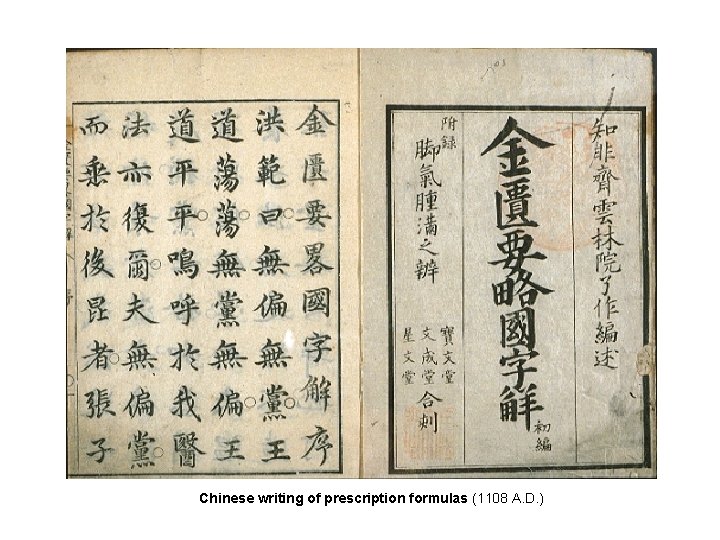 知非齊雲林院了作編述
金匱要略國字解
初編
附錄
脚氣腫滿之辨
寶文堂
文成堂
星文堂
合刻
金匱要畧國字解序
洪範曰無偏無黨王
道蕩蕩無黨無偏王
道平平鳴呼於我醫
法亦復爾夫無偏黨
而垂於後昆者張子
Chinese writing of prescription formulas (1108 A.D.)